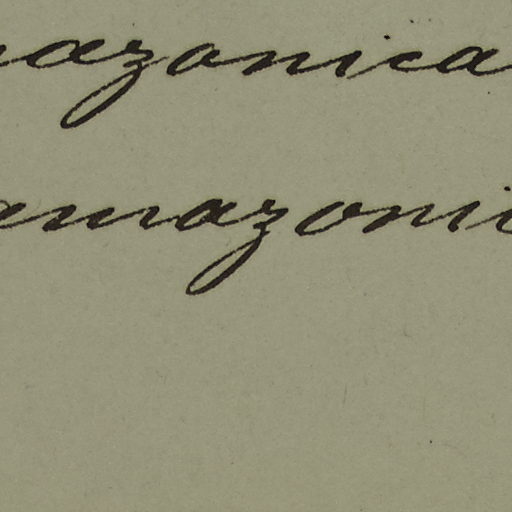 azonica
amazonic